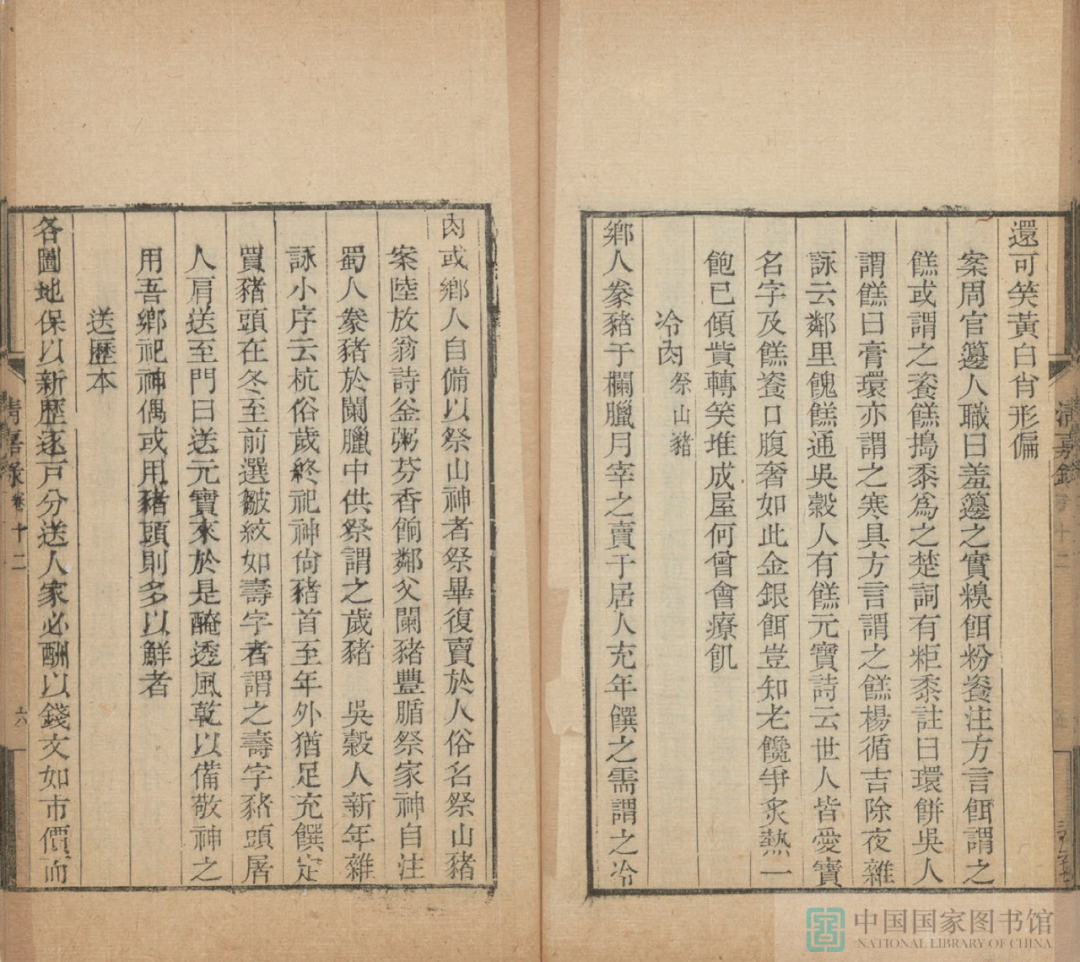 還可笑黃白肖形偏
案周官籩人職曰羞籩之實糗餌粉餈注方言餌謂之
餻或謂之餈餻搗黍爲之楚詞有粔黍註曰環餅吳人
謂餻曰膏環亦謂之寒具方言謂之餻楊循吉除夜雜
詠云鄰里餽餻通吳穀人有餻元寶詩云世人皆愛寶
名字及餻餈口腹奢如此金銀餌豈知老饞爭炙熱一
飽已傾貲轉笑堆成屋何曾會療飢
冷肉 祭山豬
鄉人豢豬于欄臘月宰之賣于居人充年饌之需謂之冷
清嘉錄 卷十二
肉或鄉人自備以祭山神者祭畢復賣於人俗名祭山豬
案陸放翁詩釜粥芬香餉鄰父闌豬豐腯祭家神自注
蜀人豢豬於闌臘中供祭謂之歲豬 吳穀人新年雜
詠小序云杭俗歲終祀神尙豬首至年外猶足充饌定
買豬頭在冬至前選皺紋如壽字者謂之壽字豬頭屠
人肩送至門曰送元寶來於是醃透風乾以備敬神之
用吾鄉祀神偶或用豬頭則多以鮮者
送歷本
各圖地保以新歷逐戶分送人家必酬以錢文如市價而
清嘉錄 卷十二
十六
中国国家图书馆
NATIONAL LIBRARY OF CHINA